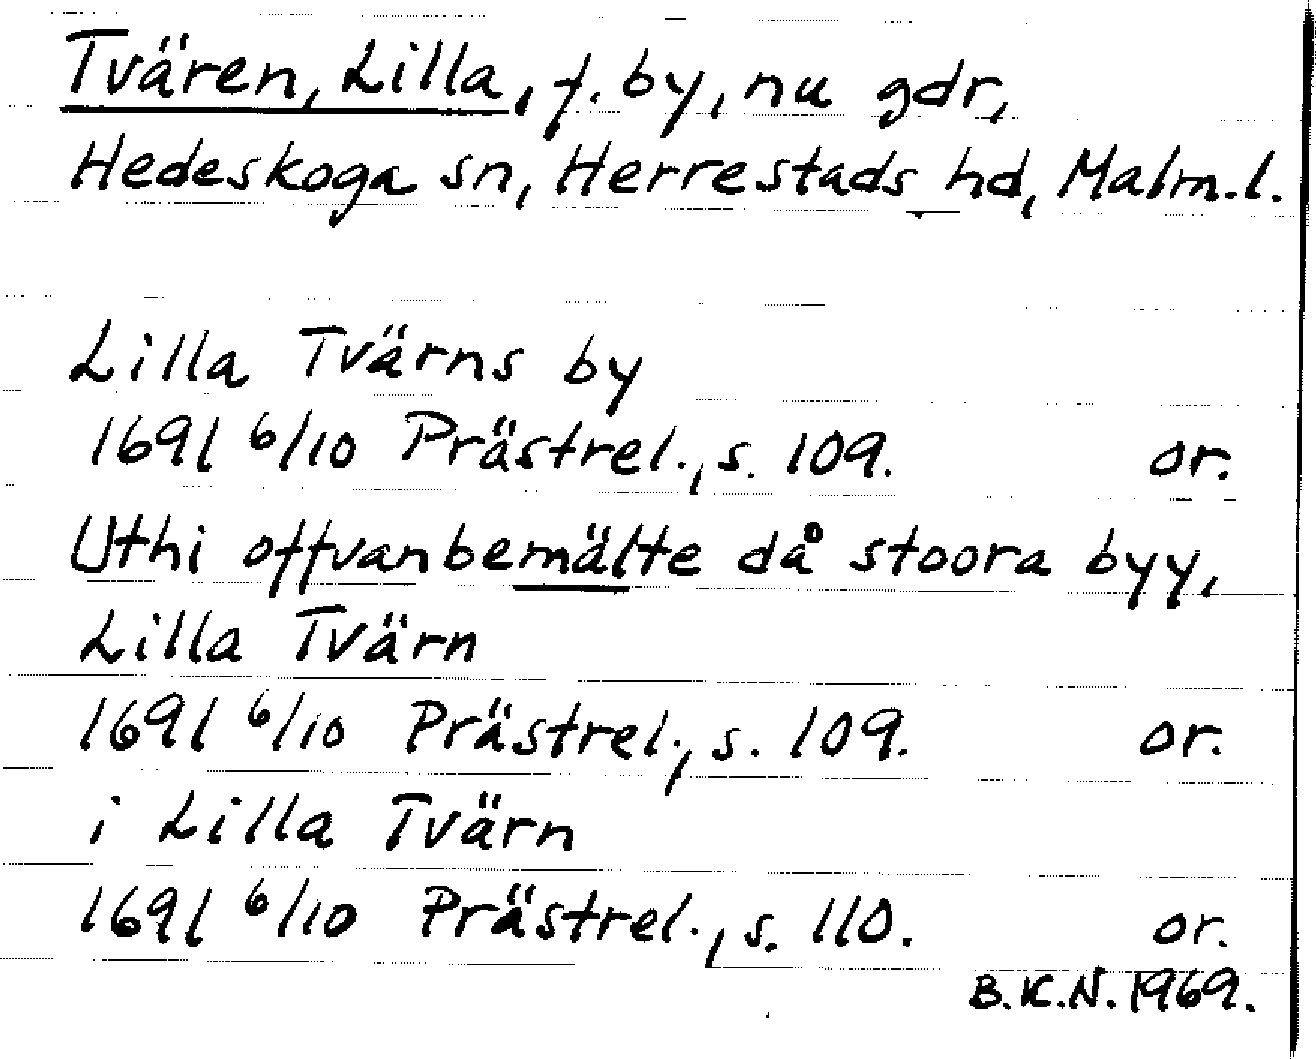 Tvären, Lilla, f. by, nu gdr,
Hedeskoga sn, Herrestads hd, Malm.l.
Lilla Tvärns by
1691 6/10 Prästrel., s. 109. or.
Uthi offvanbemälte då stoora byy,
Lilla Tvärn
1691 6/10 Prästrel., s. 109. or.
i Lilla Tvärn
1691 6/10 Prästrel., s. 110. or.
B.K.N. 1969.